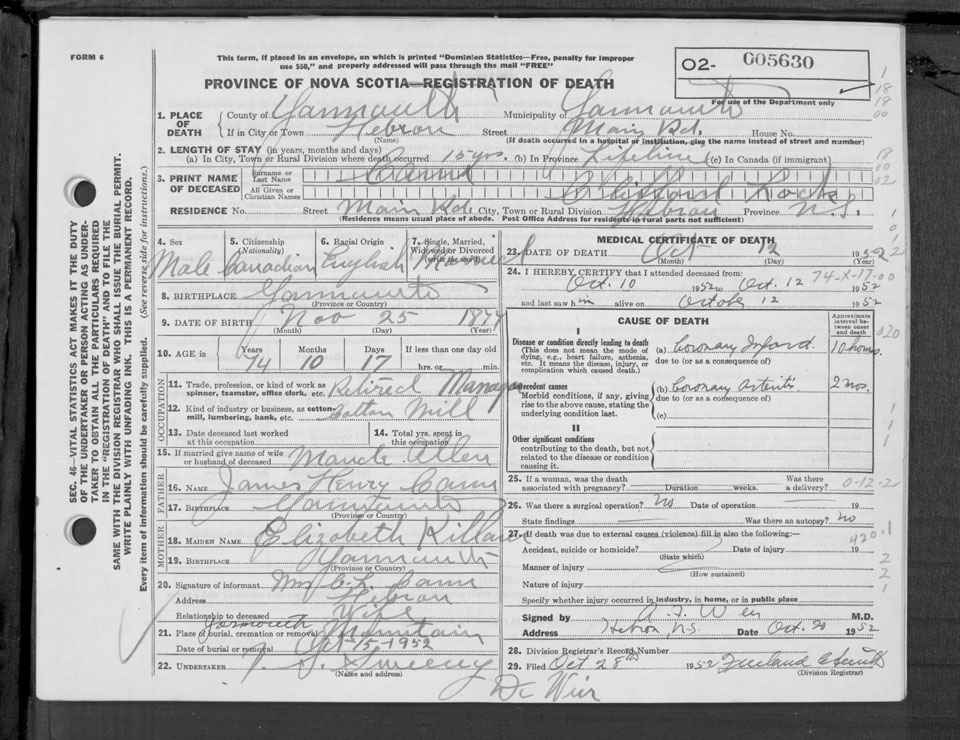 FORM 6
This form, if placed in an envelope, on which is printed "Dominion Statistics—Free, penalty for improper
use $50," and properly addressed will pass through the mail "FREE"
O2- 005630
For use of the Department only
PROVINCE OF NOVA SCOTIA—REGISTRATION OF DEATH
1. PLACE OF DEATH County of Yarmouth Municipality of Yarmouth
If in City or Town Hebron Street Main Rd. House No.
(Name) (If death occurred in a hospital or institution, give the name instead of street and number)
2. LENGTH OF STAY (in years, months and days)
(a) In City, Town or Rural Division where death occurred 15 yrs. (b) In Province Lifetime (c) In Canada (if immigrant)
3. PRINT NAME OF DECEASED Surname or Last Name Cann
All Given or Christian Names Clifford Locke
RESIDENCE No. Street Main Rd. City, Town or Rural Division Hebron Province N.S.
(Residence means usual place of abode. Post Office Address for residents in rural parts not sufficient)
4. Sex 5. Citizenship (Nationality) 6. Racial Origin 7. Single, Married, Widowed or Divorced (write the word)
Male Canadian English Married
8. BIRTHPLACE Yarmouth
(Province or Country)
9. DATE OF BIRTH Nov 25 1877
(Month) (Day) (Year)
10. AGE in Years Months Days If less than one day old
74 10 17 hrs. or min.
OCCUPATION
11. Trade, profession, or kind of work as spinner, teamster, office clerk, etc. Retired Manager
12. Kind of industry or business, as cotton-mill, lumbering, bank, etc. Cotton Mill
13. Date deceased last worked at this occupation 14. Total yrs. spent in this occupation
15. If married give name of wife or husband of deceased Maude Allen
FATHER
16. NAME James Henry Cann
17. BIRTHPLACE Yarmouth
(Province or Country)
MOTHER
18. MAIDEN NAME Elizabeth Killam
19. BIRTHPLACE Yarmouth
(Province or Country)
20. Signature of informant Mrs C. L. Cann
Address Hebron
Relationship to deceased Wife
21. Place of burial, cremation or removal Yarmouth Mountain
Date of burial or removal Oct 15, 1952
22. UNDERTAKER Sweeny
(Name and address)
MEDICAL CERTIFICATE OF DEATH
23. DATE OF DEATH Oct 12 1952
(Month) (Day) (Year)
24. I HEREBY CERTIFY that I attended deceased from:
74-X-17-00
Oct. 10 1952 to Oct. 12 1952
and last saw him alive on October 12 1952
CAUSE OF DEATH
Approximate interval between onset and death
I
Disease or condition directly leading to death
(This does not mean the mode of dying, e.g., heart failure, asthenia, etc. It means the disease, injury, or complication which caused death.)
(a) Coronary Infarct. 10 hours.
due to (or as a consequence of)
Antecedent causes
Morbid conditions, if any, giving rise to the above cause, stating the underlying condition last.
(b) Coronary 2 mos.
due to (or as a consequence of)
(c)
II
Other significant conditions
contributing to the death, but not related to the disease or condition causing it.
25. If a woman, was the death associated with pregnancy? Duration weeks. Was there a delivery? 0-12-2
26. Was there a surgical operation? No Date of operation 19
State findings Was there an autopsy? No
27. If death was due to external causes (violence) fill in also the following:—
420.1
Accident, suicide or homicide? Date of injury 19
(State which)
Manner of injury
(How sustained)
Nature of injury
Specify whether injury occurred in industry, in home, or in public place
Signed by Weir M.D.
Address Hebron, N.S. Date Oct. 20 1952
28. Division Registrar's Record Number
29. Filed Oct 28th 1952
(Division Registrar)
Dr Weir
SEC. 46—VITAL STATISTICS ACT MAKES IT THE DUTY
OF THE UNDERTAKER OR PERSON ACTING AS UNDERTAKER
TO OBTAIN ALL THE PARTICULARS REQUIRED
IN THE "REGISTRATION OF DEATH" AND TO FILE THE
SAME WITH THE DIVISION REGISTRAR WHO SHALL ISSUE THE BURIAL PERMIT.
WRITE PLAINLY WITH UNFADING INK. THIS IS A PERMANENT RECORD.
Every item of information should be carefully supplied. (See reverse side for instructions.)